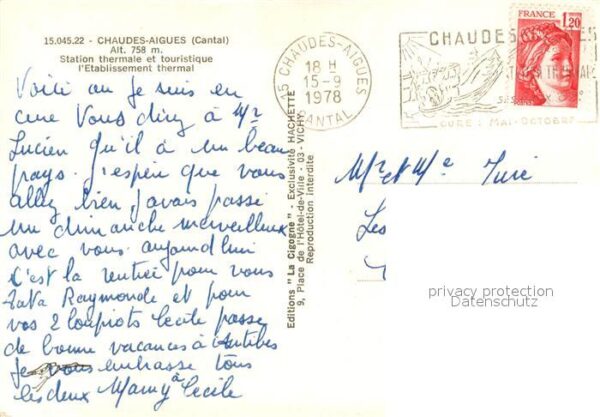 15.045.22 - CHAUDES-AIGUES (Cantal)
Alt. 758 m.
Station thermale et touristique
l'Etablissement thermal
Voici ou je suis en
cure Vous direz à Mr
Lucien qu'il a un beau
pays. j'espère que vous
allez bien j'avais passé
un dimanche merveilleux
avec vous aujourd'hui
c'est la rentrée pour vous
Tata Raymonde et pour
vos 2 loupiots Cecile passe
de bonne vacances à Antibes
Je vous embrasse tous
les deux Mamy à Cecile
Editions "La Cigogne" - Exclusivité HACHETTE
9, Place de l'Hôtel-de-Ville - 03 - VICHY
Reproduction interdite
15 CHAUDES-AIGUES
18 H
15-9
1978
CANTAL
CHAUDES
CURE : MAI-OCTOBRE
FRANCE
1,20
Mr et Me
Les
privacy protection
Datenschutz